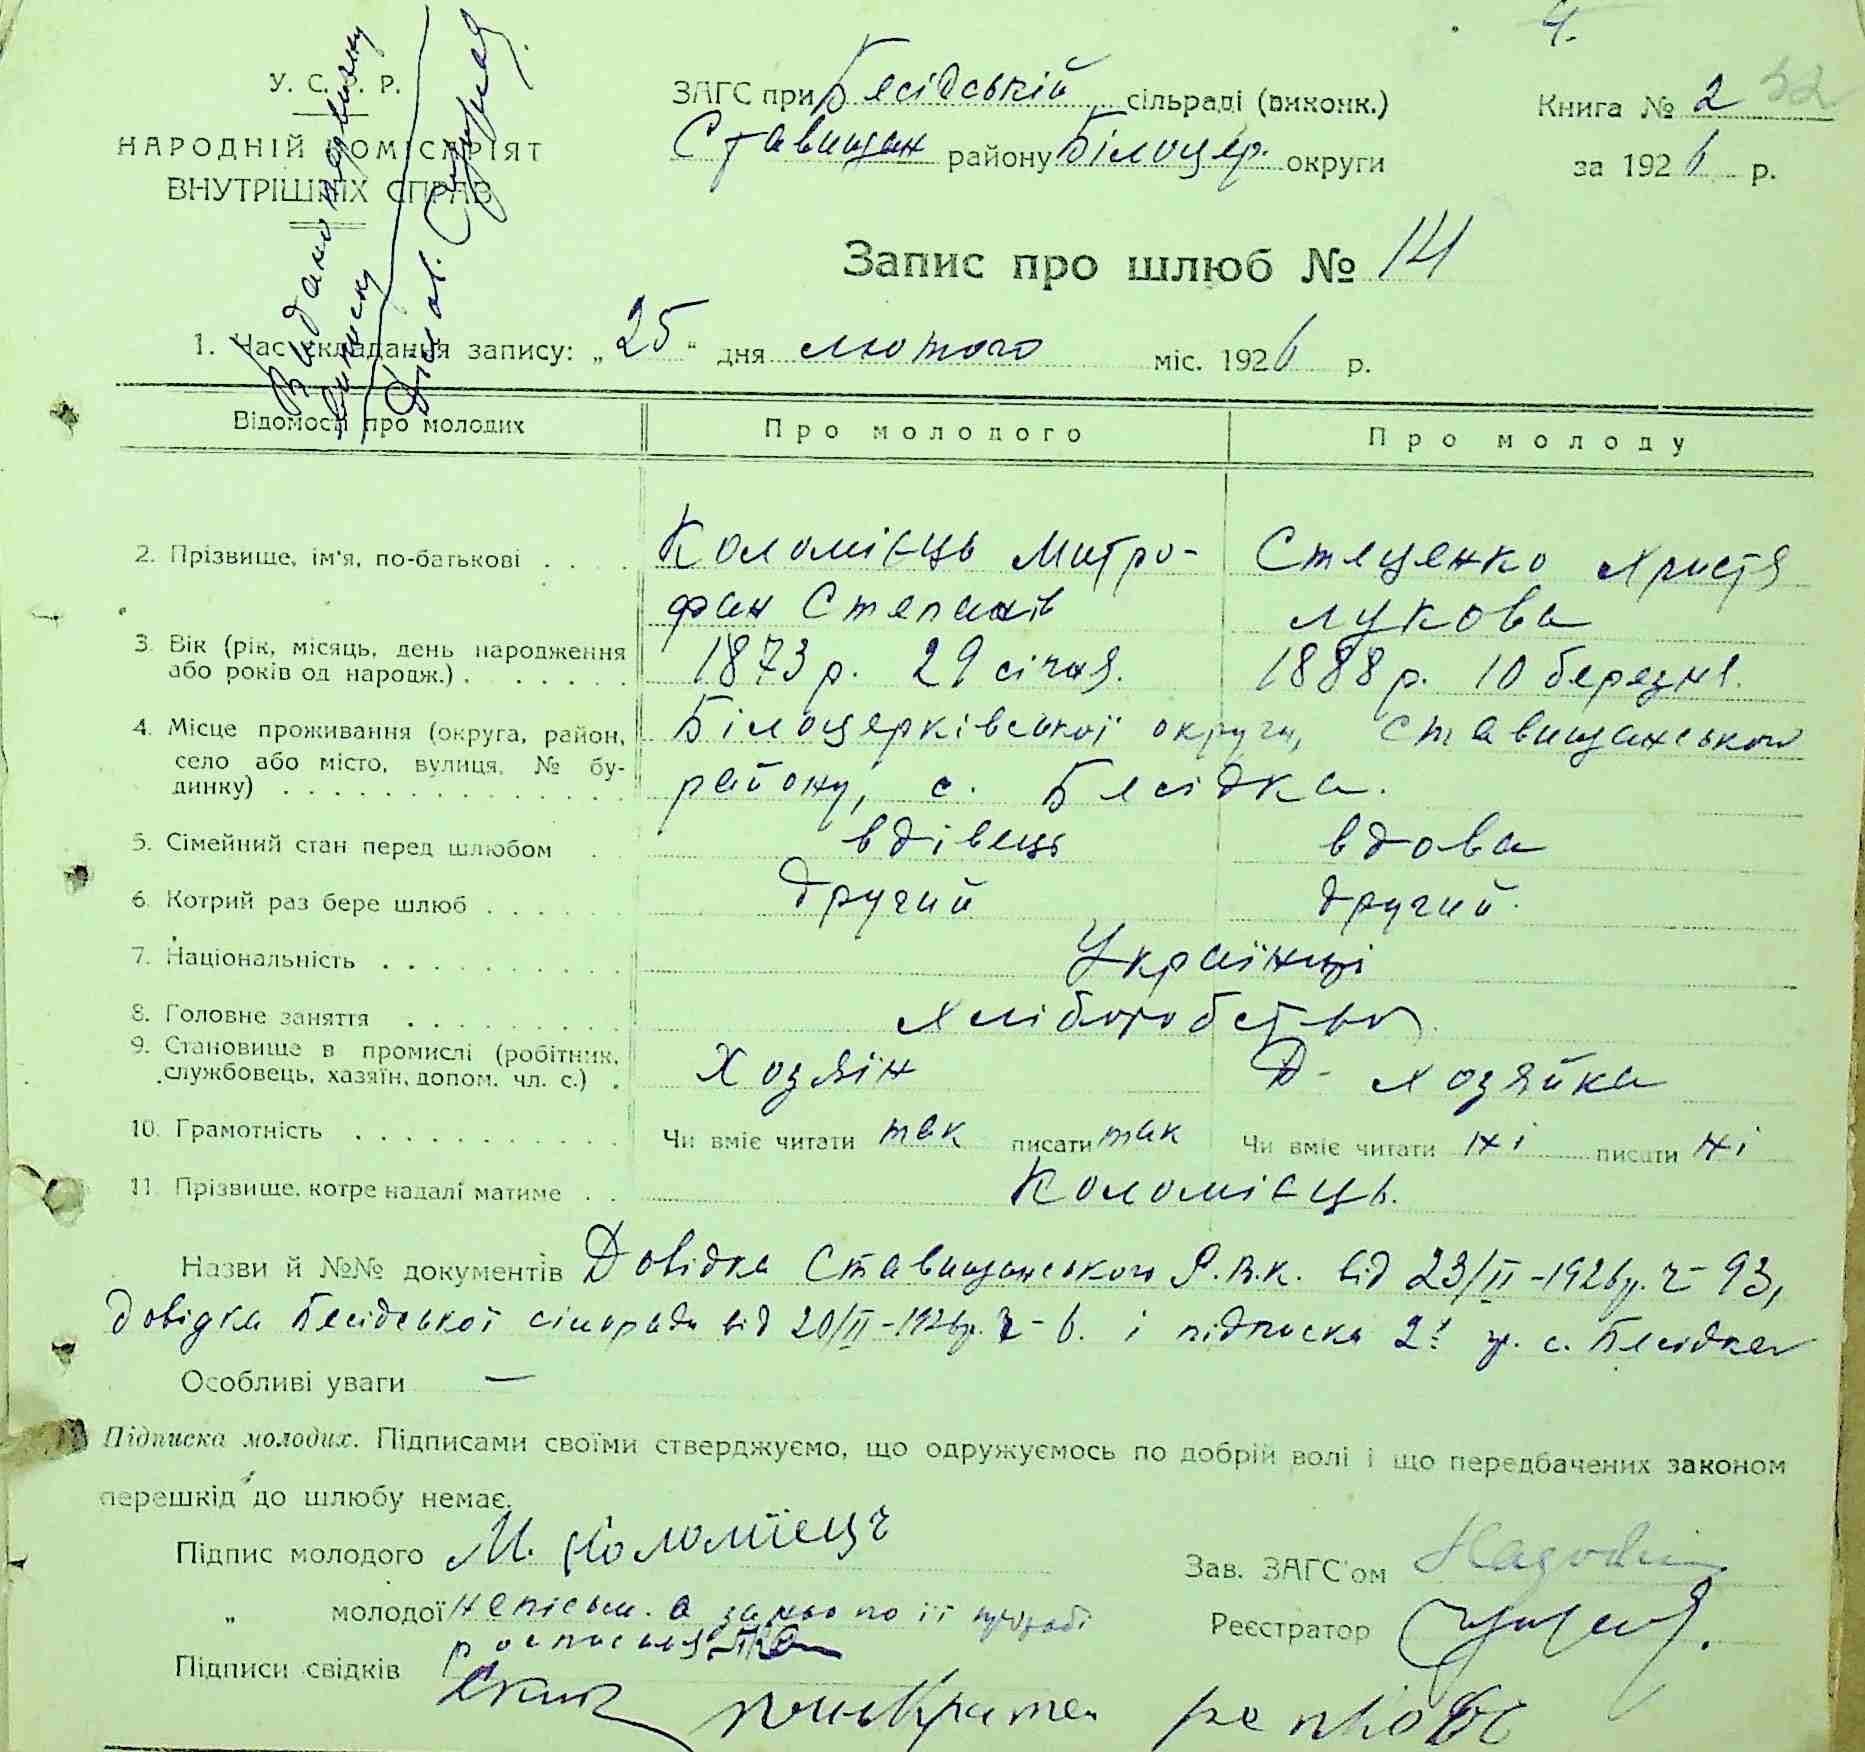 4.
У. С. Р. Р.
НАРОДНІЙ КОМІСАРІЯТ
ВНУТРІШНІХ СПРАВ
Видано первинну
виписку
Діл ов.
ЗАГС при Бесідській сільраді (виконк.)
Ставищан району Білоцер. округи
Книга № 2 32
за 1926 р.
Запис про шлюб № 14
1. Час складання запису: „25“ дня лютого міс. 1926 р.
Відомості про молодих Про молодого Про молоду
2. Прізвище, ім'я, по-батькові Коломієць Митро- Стеценко Христя
фан Степанів Лукова
3. Вік (рік, місяць, день народження 1873 р. 29 січня. 1888 р. 10 березня.
або років од народж.)
4. Місце проживання (округа, район, Білоцерківської округи, Ставищанського
село або місто, вулиця, № бу- району, с. Бесідка.
динку)
5. Сімейний стан перед шлюбом вдівець вдова
6. Котрий раз бере шлюб другий другий.
7. Національність Українці
8. Головне заняття хліборобство
9. Становище в промислі (робітник, Хозяїн Д- хозяйка
службовець, хазяїн, допом. чл. с.)
10. Грамотність Чи вміє читати так писати так Чи вміє читати ні писати ні
11. Прізвище, котре надалі матиме Коломієць.
Назви й №№ документів Довідка Ставищанського Р.В.К. від 23/II-1926р. ч-93,
довідка Бесідської сільради від 20/II-1926р. ч-6. і підписка 2х гр. с. Бесідки
Особливі уваги —
Підписка молодих. Підписами своїми стверджуємо, що одружуємось по добрій волі і що передбачених законом
перешкід до шлюбу немає.
Підпис молодого М. Коломіець
Зав. ЗАГС'ом
„ молодої неписьм. а за нью по її прозбі
росписался
Реєстратор
Підписи свідків